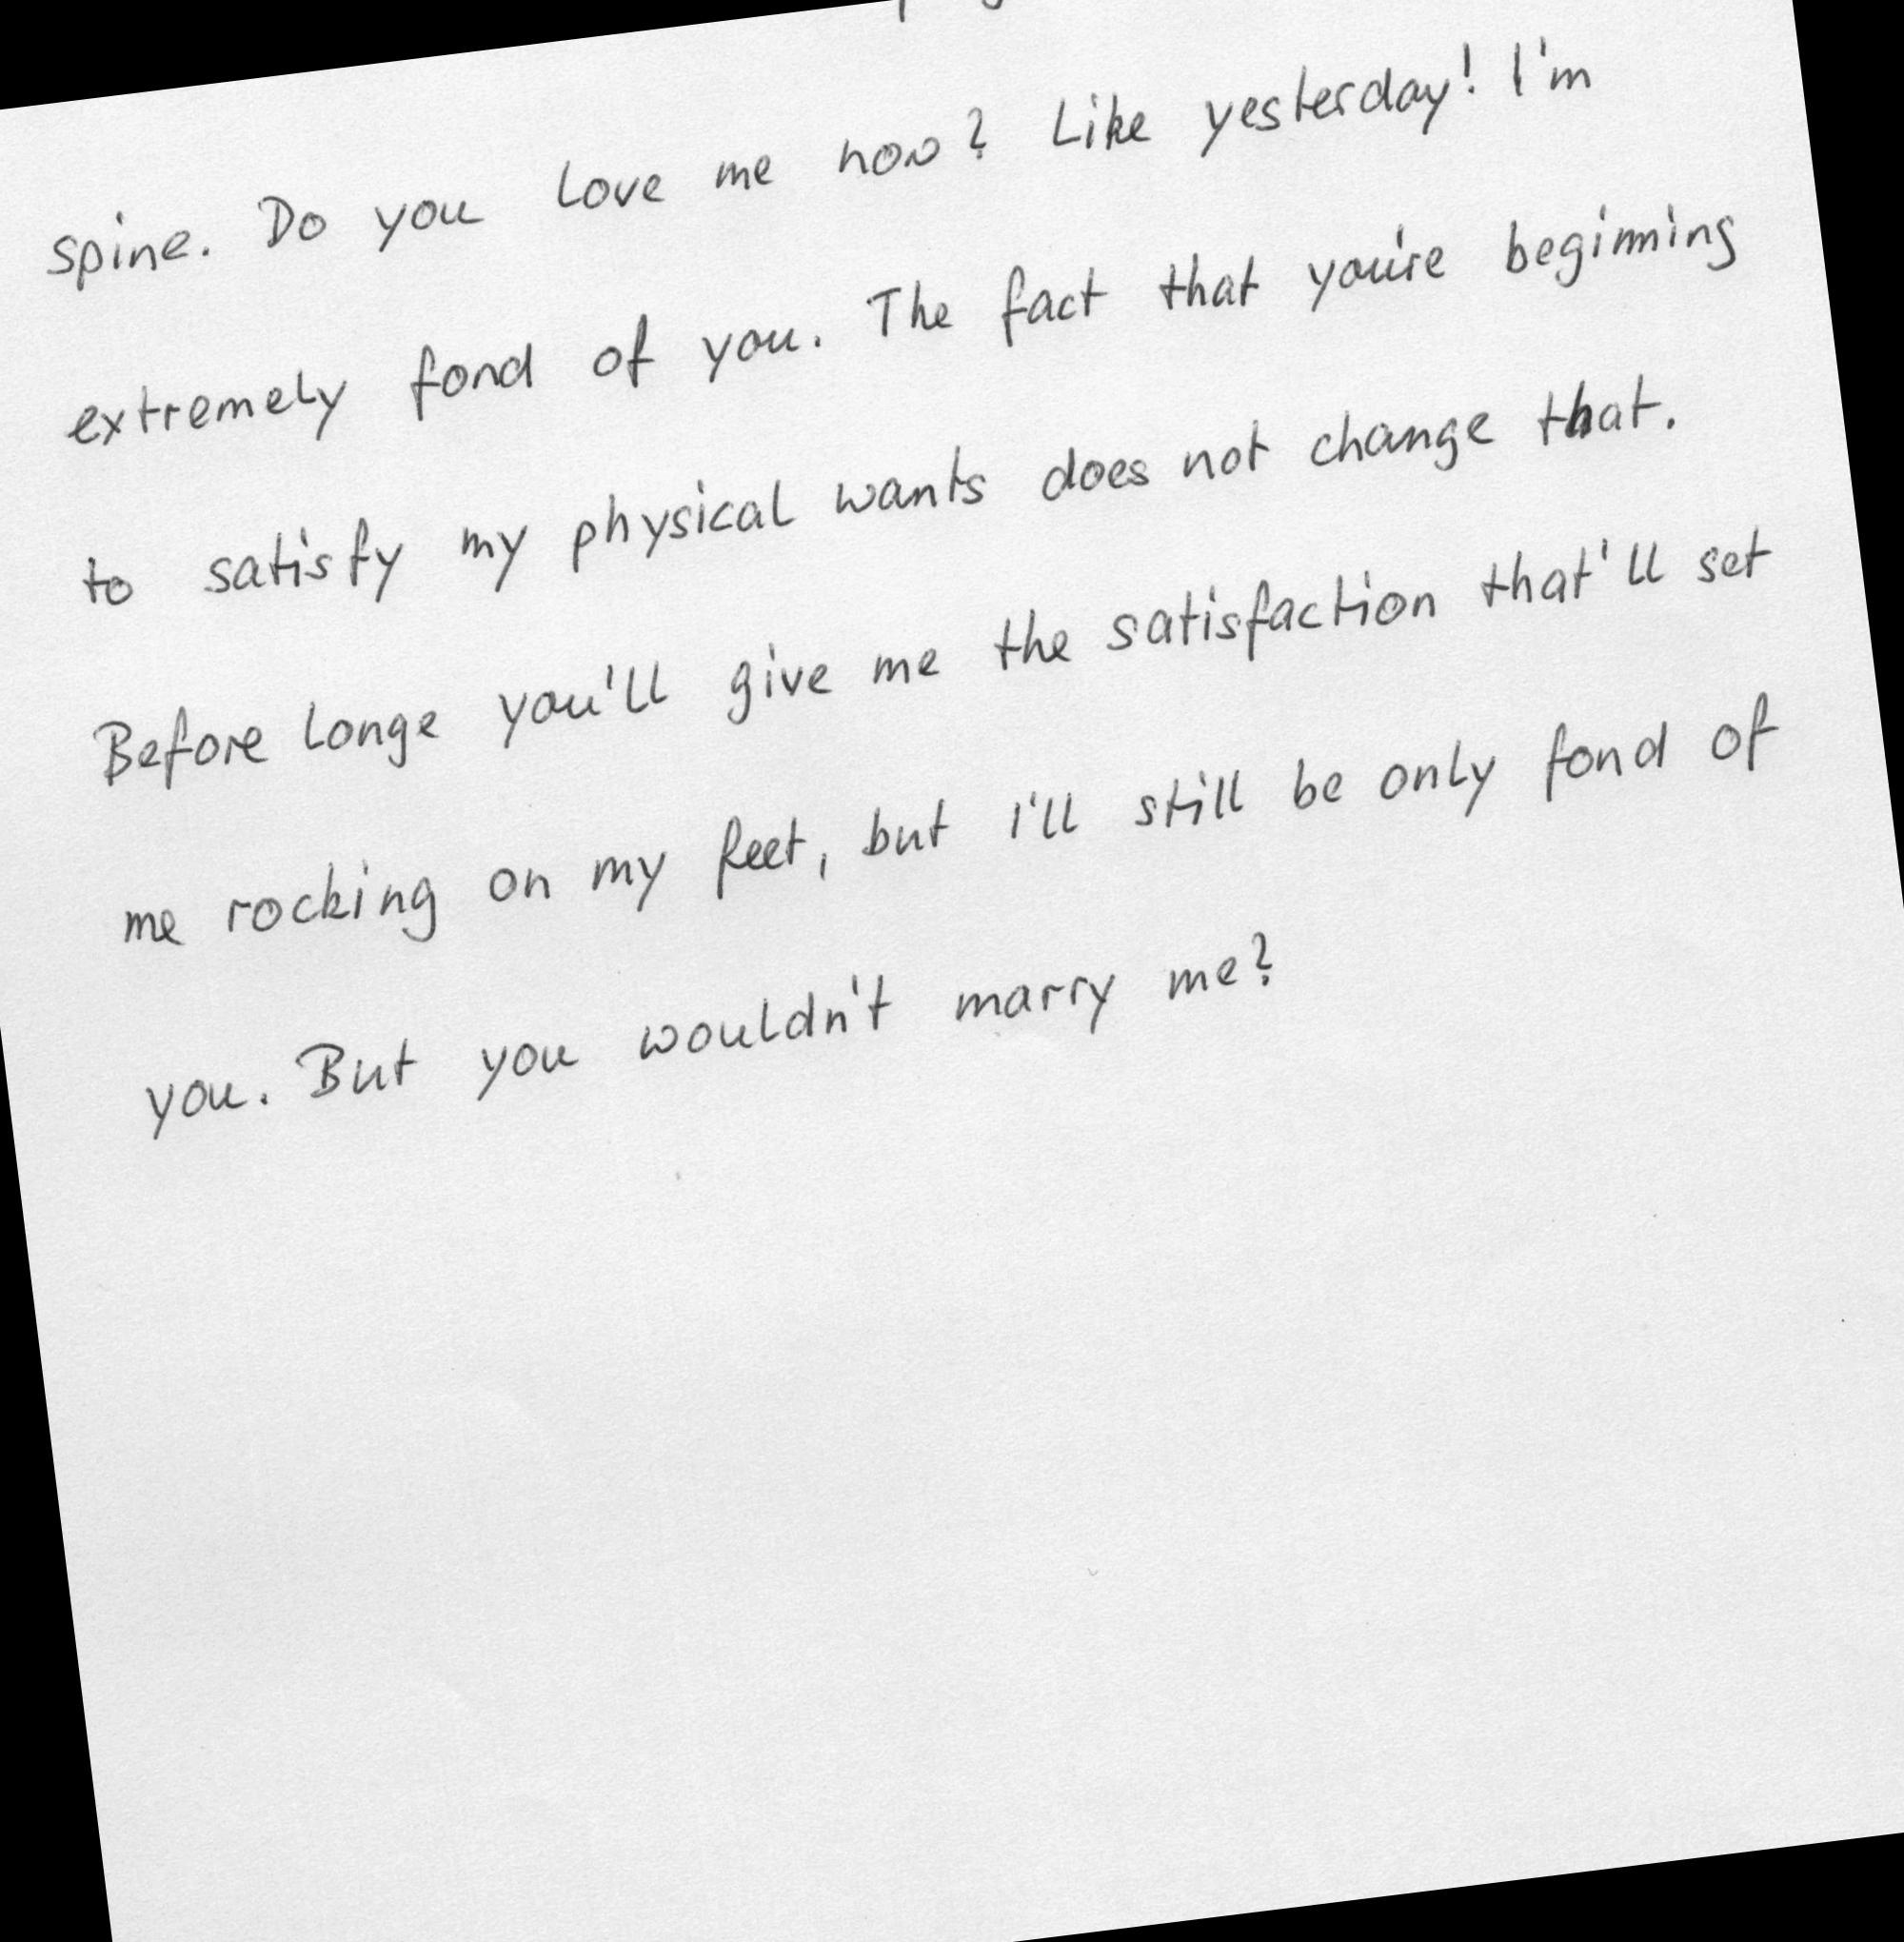 spine. Do you love me now? Like yesterday! I'm
extremely fond of you. The fact that you're beginning
to satisfy my physical wants does not change that.
Before longe you'll give me the satisfaction that'll set
me rocking on my feet, but I'll still be only fond of
you. But you wouldn't marry me?